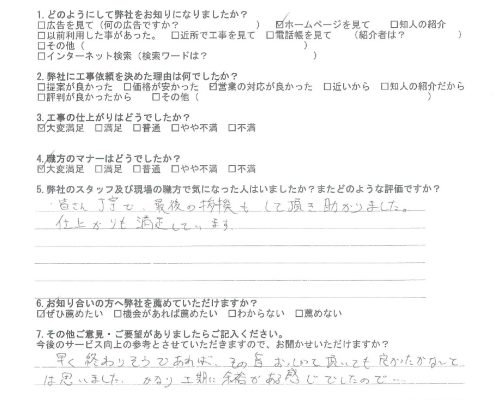 1. どのようにして弊社をお知りになりましたか?
□広告を見て（何の広告ですか? ） ☑ホームページを見て □知人の紹介
□以前利用した事があった。 □近所で工事を見て □電話帳を見て （紹介者は? ）
□その他（ ）
□インターネット検索（検索ワードは? ）
2. 弊社に工事依頼を決めた理由は何でしたか?
□提案が良かった □価格が安かった ☑営業の対応が良かった □近いから □知人の紹介だから
□評判が良かったから □その他（ ）
3. 工事の仕上がりはどうでしたか?
☑大変満足 □満足 □普通 □やや不満 □不満
4. 職方のマナーはどうでしたか?
☑大変満足 □満足 □普通 □やや不満 □不満
5. 弊社のスタッフ及び現場の職方で気になった人はいましたか?またどのような評価ですか?
皆さん丁寧で、最後の挨拶もして頂き助かりました。
仕上がりも満足しています。
6. お知り合いの方へ弊社を薦めていただけますか?
☑ぜひ薦めたい □機会があれば薦めたい □わからない □薦めない
7. その他ご意見・ご要望がありましたらご記入ください。
今後のサービス向上の参考とさせていただきますので、お聞かせいただけますか?
早く終わりそうであれば、その旨おっしゃって頂いても良かったかなとは
は思いました。かなり工期に余裕がある感じでしたので…